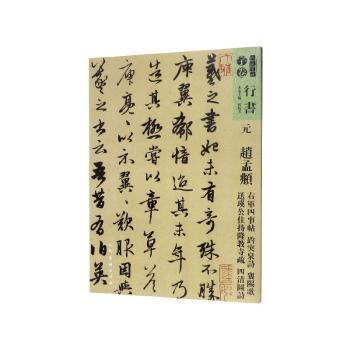 行書
元 趙孟頫
右軍四事帖 趵突泉詩 襄陽歌
送瑛公住持隆教寺疏 四清圖詩
羲之書始未有奇殊不勝
庾翼郗愔迨其末年乃
造其極嘗以章草答
庾亮〻以示翼〻歎服因與
羲之書云吾昔有伯英